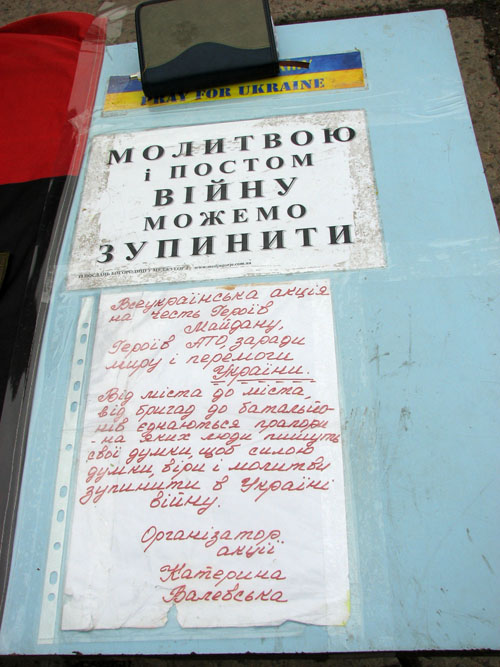 PRAY FOR UKRAINE
МОЛИТВОЮ
і ПОСТОМ
ВІЙНУ
МОЖЕМО
ЗУПИНИТИ
Всеукраїнська акція
на честь Героїв
Майдану,
Героїв АТО, заради
миру і перемоги
України.
Від міста до міста
від бригад до батальйо-
нів єднаються прапори
на яких люди пишуть
свої думки, щоб силою
думки, віри і молитви
зупинити в Україні
війну.
Організатор
акції
Катерина
Валевська